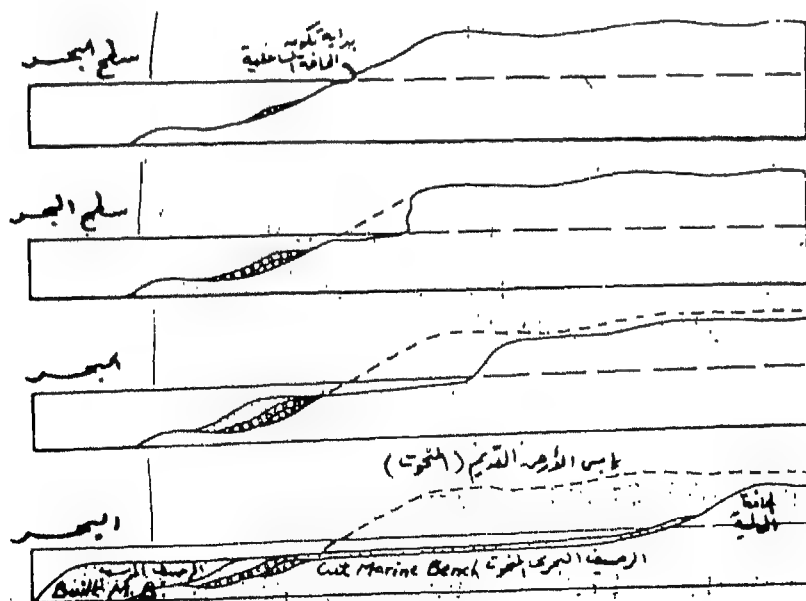 سطح البحر
بداية تكون
الحافة الساحلية
سطح البحر
البحر
يابس الأرض القديم (المنحوت)
البحر
الحافة
الرصيف
الرصيف البحرى المنحوت Cut Marine Bench
Built M. B